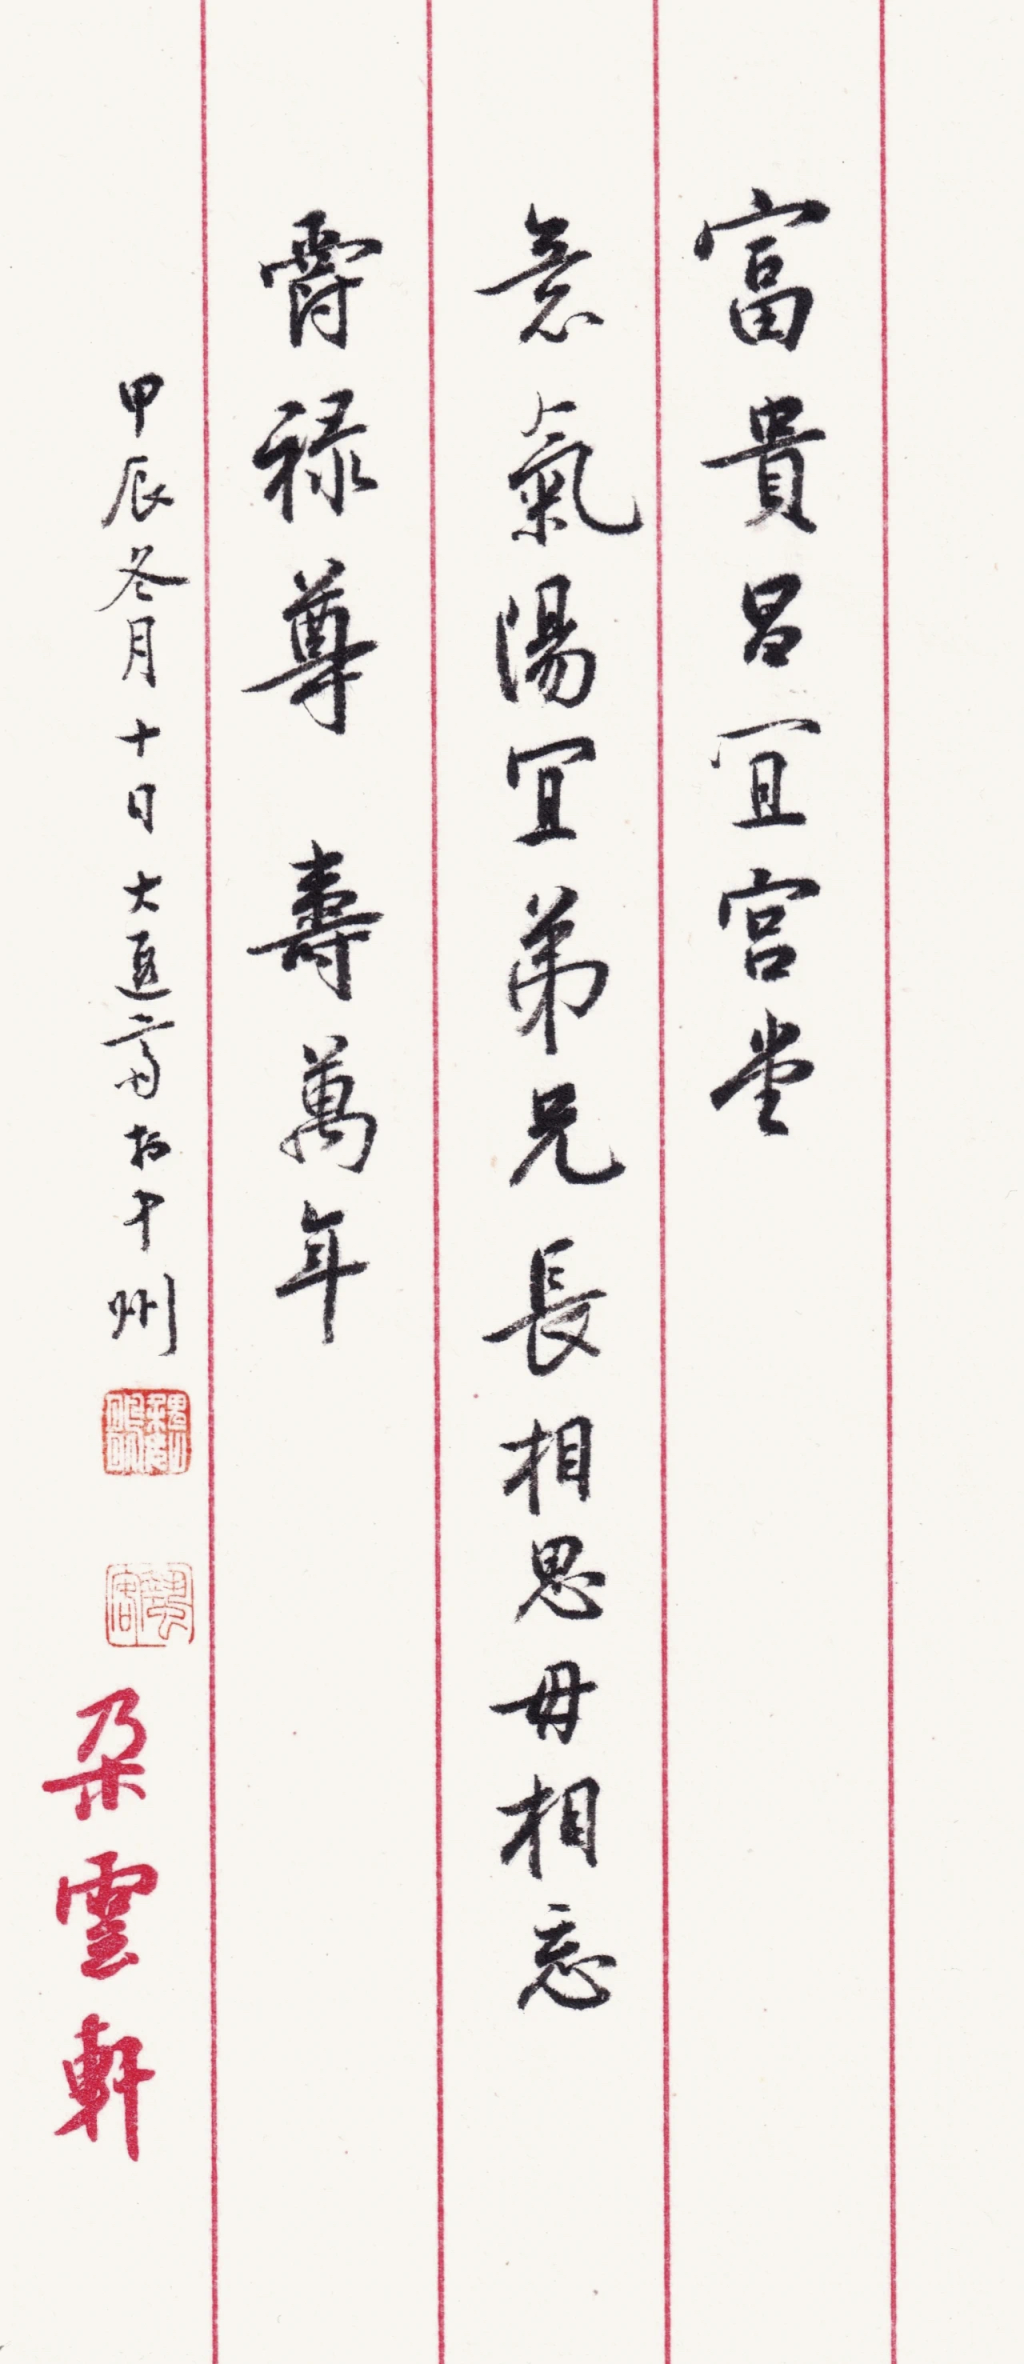 富貴昌宜宮堂
意氣陽宜弟兄長相思毋相忘
爵禄尊 壽萬年
甲辰冬月十日大匠齋於十州
朵雲軒